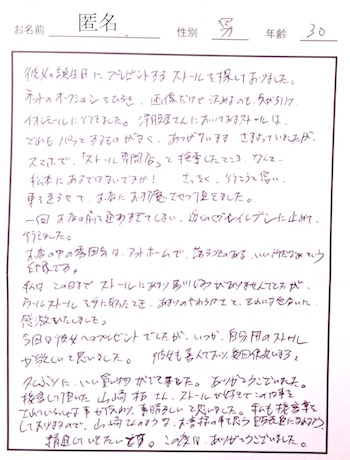 お名前 匿名 性別 男 年齢 30
彼女の誕生日にプレゼントするストールを探しておりました。
ネットのオークションでひろき、画像だけで決めるのも、ちがうし!?
イオンモールに行きました。洋服屋さんにおいてあるストールは、
どれもパッとするものがなく、あつげないまま さまよっていましたが、
スマホで、「ストール専門店」と検索したところ、なんと…
松本にあるではないですか! さっそく、行こうと思い、
車を走らせて、お店にお邪魔させて頂きました。
一回お店の前を通りすぎてしまい、近くのセブンイレブンに止めて、
行きました。
お店の中の雰囲気は、アットホームで、落ちつきのある、いい所だなぁという
印象です。
私は、この日まで ストールにあまり興味がありませんでしたが、
ウールストールを手に取ったとき、あまりのやわらかさと、きれいな色あいに、
感激いたしました。
今回は彼女へのプレゼントでしたが、いつか、自分用のストール
が欲しいと思いました。 彼女も喜んでおり、毎回使っています。
久しぶりに、いい買い物ができました。ありがとうございました。
接客して頂いた 山崎 拓さん、ストールが好きでこの仕事を
している事が伝わり、素晴しいと思いました。私も接客業を
しておりますので、山崎さんのような、お客様の事を思う販売員になれるよう
精進していきたいです。この度は、ありがとうございました。